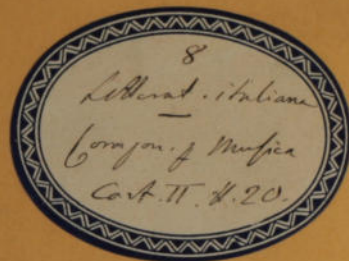 8
Letterat. italiana
Compon. p Musica
Cart. II. N. 20.